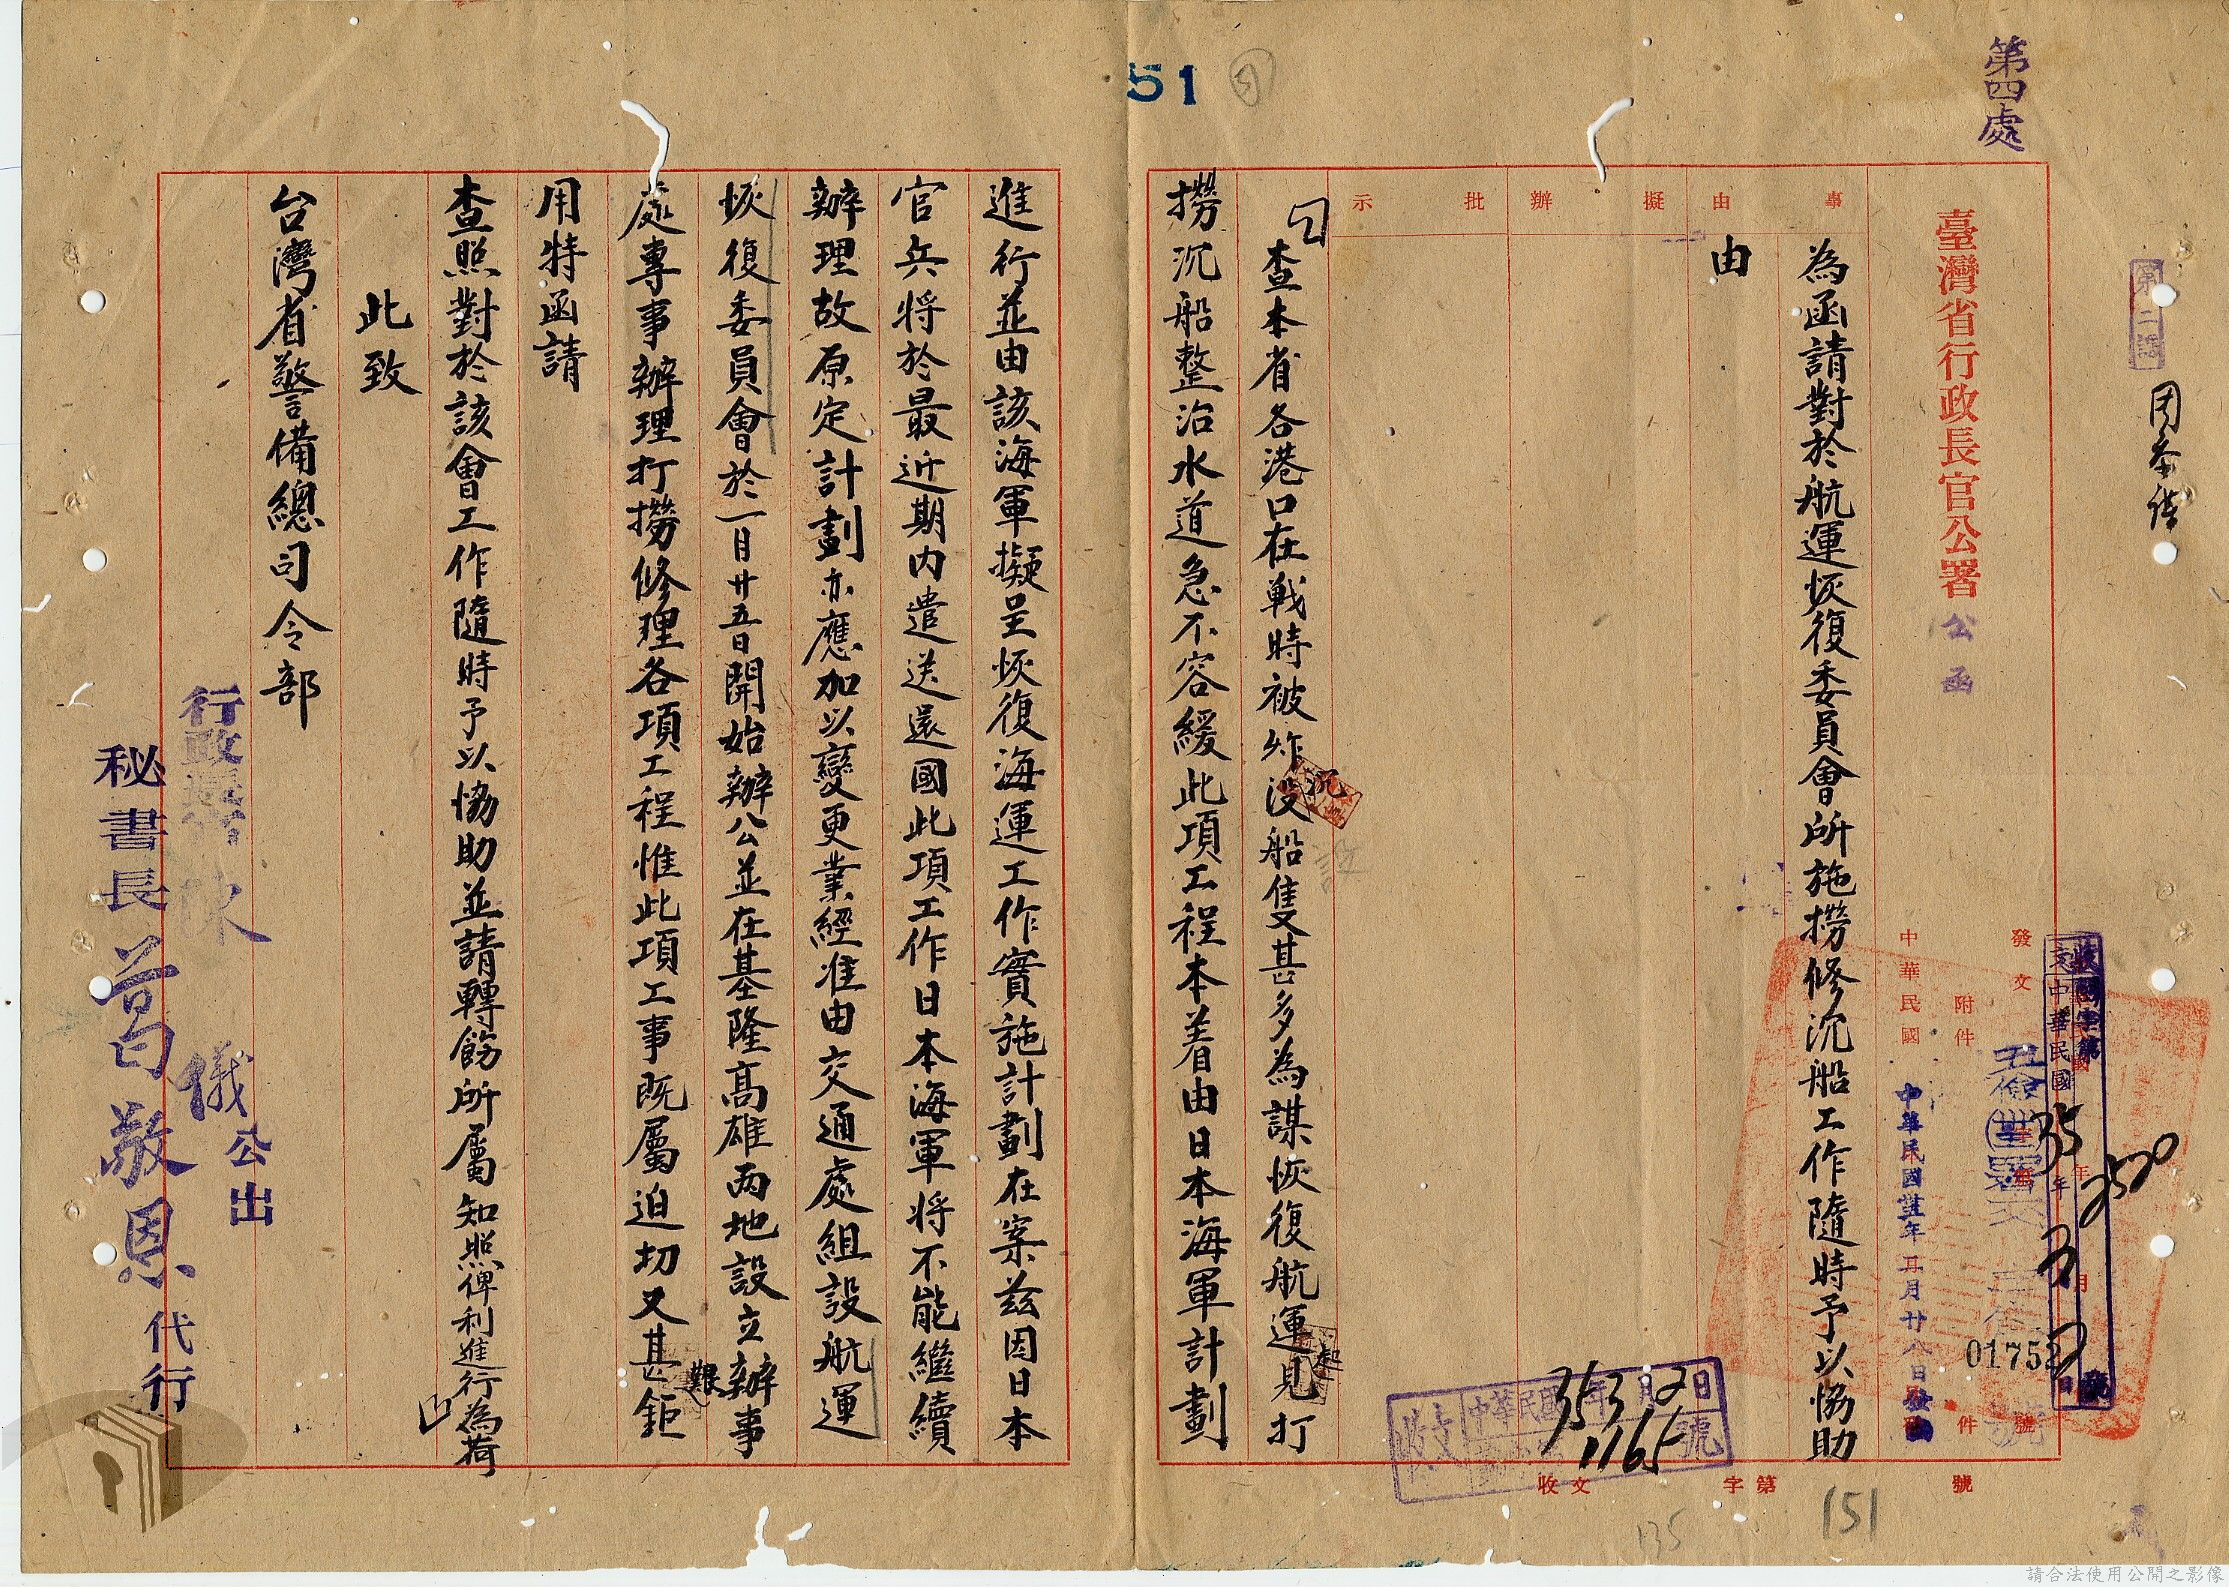 第四處
51
第二課
臺灣省行政長官公署
公函
事由
擬辦
批示
為函請對於航運恢復委員會所施撈修沉船工作隨時予以協助
由
發文
附件
中華民國
中華民國卅五年二月廿八日發出
01752
號
件
收文
字第
號
353 2
1165
2520
151
135
查本省各港口在戰時被炸沉沒船隻甚多為謀恢復航運起見打
撈沉船整治水道急不容緩此項工程本着由日本海軍計劃
進行並由該海軍擬呈恢復海運工作實施計劃在案茲因日本
官兵将於最近期内遣送還國此項工作日本海軍将不能繼續
辦理故原定計劃亦應加以變更業經准由交通處組設航運
恢復委員會於一月廿五日開始辦公並在基隆高雄両地設立辦事
處專事辦理打撈修理各項工程惟此項工事既屬迫切又甚艱鉅
用特函請
查照對於該會工作隨時予以恊助並請轉飭所屬知照俾利進行為荷
此致
台灣省警備總司令部
行政長官陳儀公出
秘書長葛敬恩代行
請合法使用公開之影像